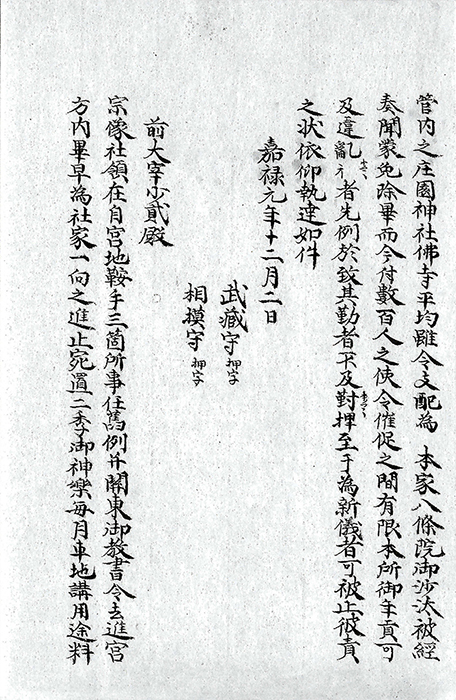 管内之庄園神社佛寺平均雖令支配為 本家八條院御沙汰被経
奏聞蒙免除畢而今付數百人之使令催促之間有限本所御年貢可
及違乱者先例於致其勤者不及對捍至于為新儀者可被止彼責
之状依仰執達如件
嘉禄元年十二月二日
武藏守 押字
相摸守 押字
前大宰少貳殿
宗像社領在自宮地鞍手三箇所事任舊例并關東御教書令去進宮
方内畢早為社家一向之進止宛置二季御神樂毎月車地講用途料